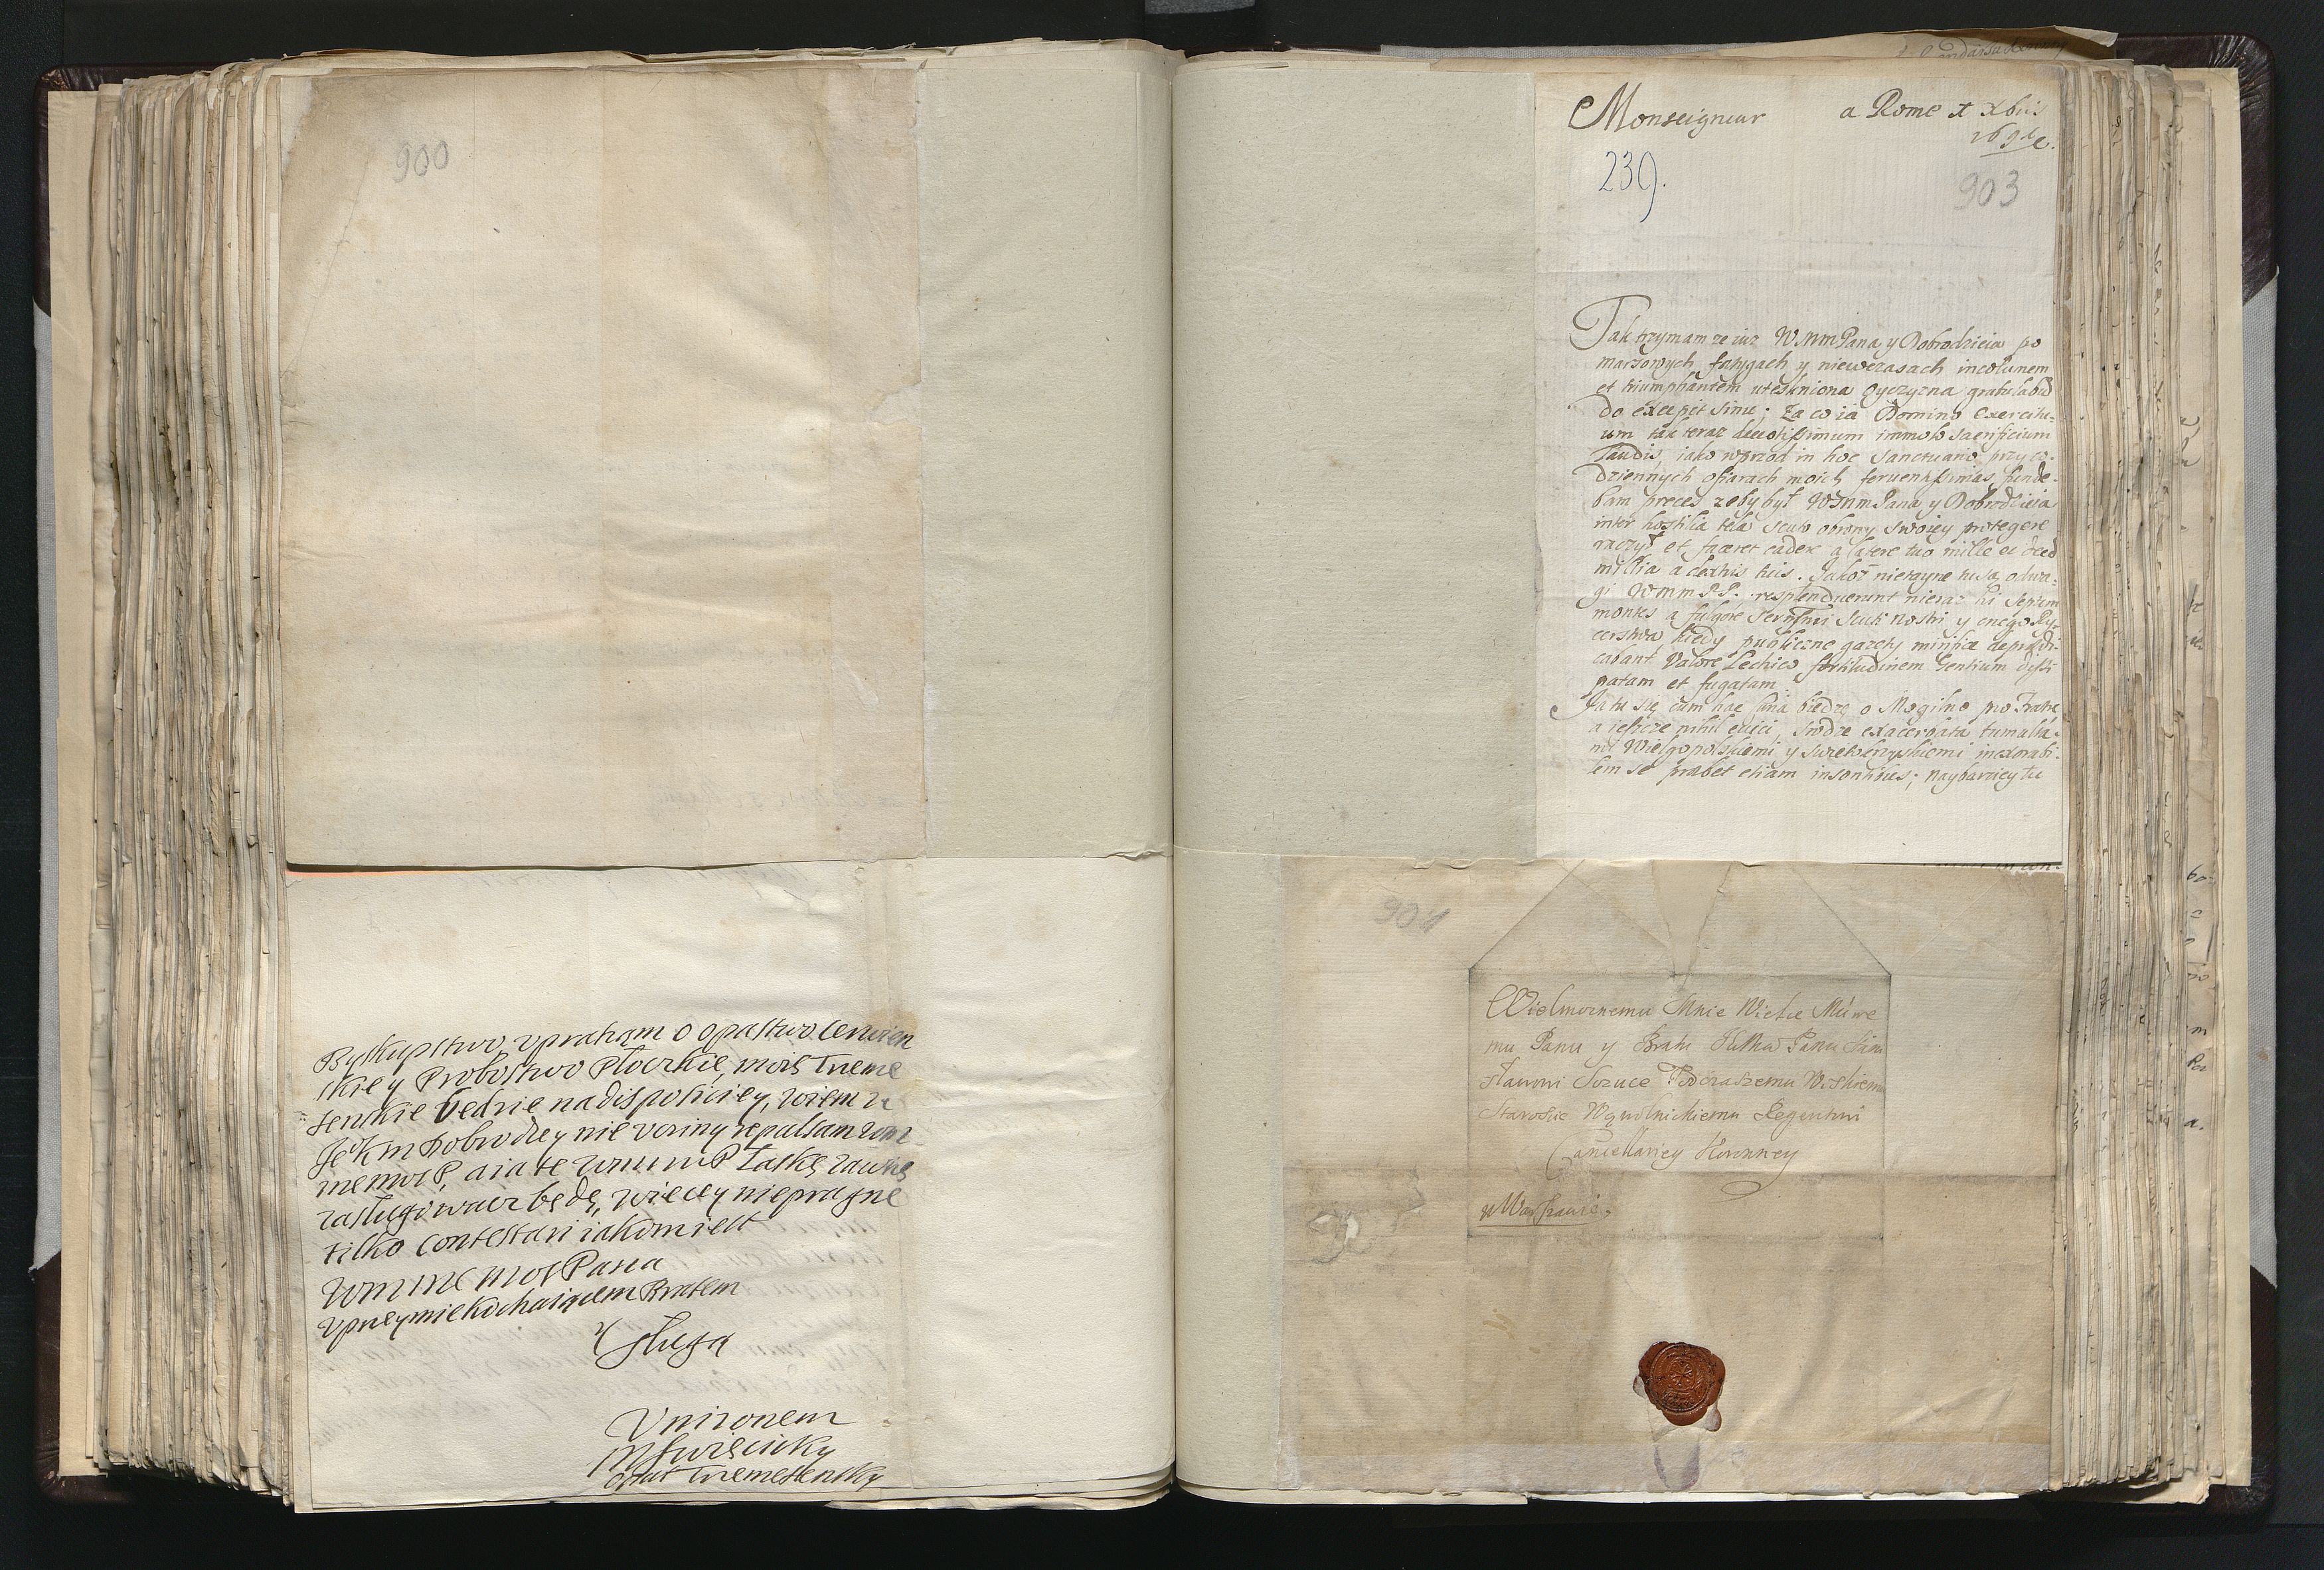 900
Byskupstwo vpraham o opastwo Cerwien
skie y Probostwo Płockie, moie Treme
senskie będzie na dispositiey, wiem ze
Jeo Km Dobrodzey nie vczyny repulsam wm
memos P, a ia te wmm mP łaskę zawszę
zasługowacz będę, więcey nie pragnę
tilko contestari iakom iest
wm me mos Pana
vprzeymie kochaiącem Bratem
y sługą
Vnizonem
MSwięcicky
opat Tremesensky
Monseigneur a Rome
239.
903
Tak trzymam ze iuz WMmPana y Dobrodzieia po
marsowych fatygach y niewczasach incolumem
et triumphantem uteskniona Oyczyzna gratulabun
do excepit sinu; Za co ia Domino Exercitu-
um tak teraz devotissimum immolo sacrificium
laudis, iako wprzod in hoc Sanctuario przy co-
dziennych ofiarach moich ferventissimas funde-
bam preces zeby był WMmPana y Dobrodzieia
inter hostilia tela scuto obrony swoiey protegere
raczył et faceret cadere a latere tuo mille et decem
millia a dextris tuis. Jakoż nietayne tu są odwa-
gi WMmPP. resplenduerunt nieraz hi Septem
montes a fulgore Sernmi Scuti nostri y onego Ry-
cerstwa kiedy publiczne gazety mirifice deprædi-
cabant Valore Lechico fortitudinem Gentium dissi
patam et fugatam.
Ja tu się cum hac biedzę o Mogilno pro Fratre
a ieszcze nihil evici, srodze exacerbata tumulta-
mi Wielgopolskiemi y Swiętokrzyskiemi inexorabi-
lem se præbet etiam insontibus; naybardziey tu
904
Wielmoznemu Mnie Wielce Mściwe
mu Panu y Bratu JeMsci Panu Stani
sławowi Szczuce Podczaszemu Wiskiemu
Staroscie Wąwolnickiemu Regentowi
Cancellariey Koronney
w Warszawie.